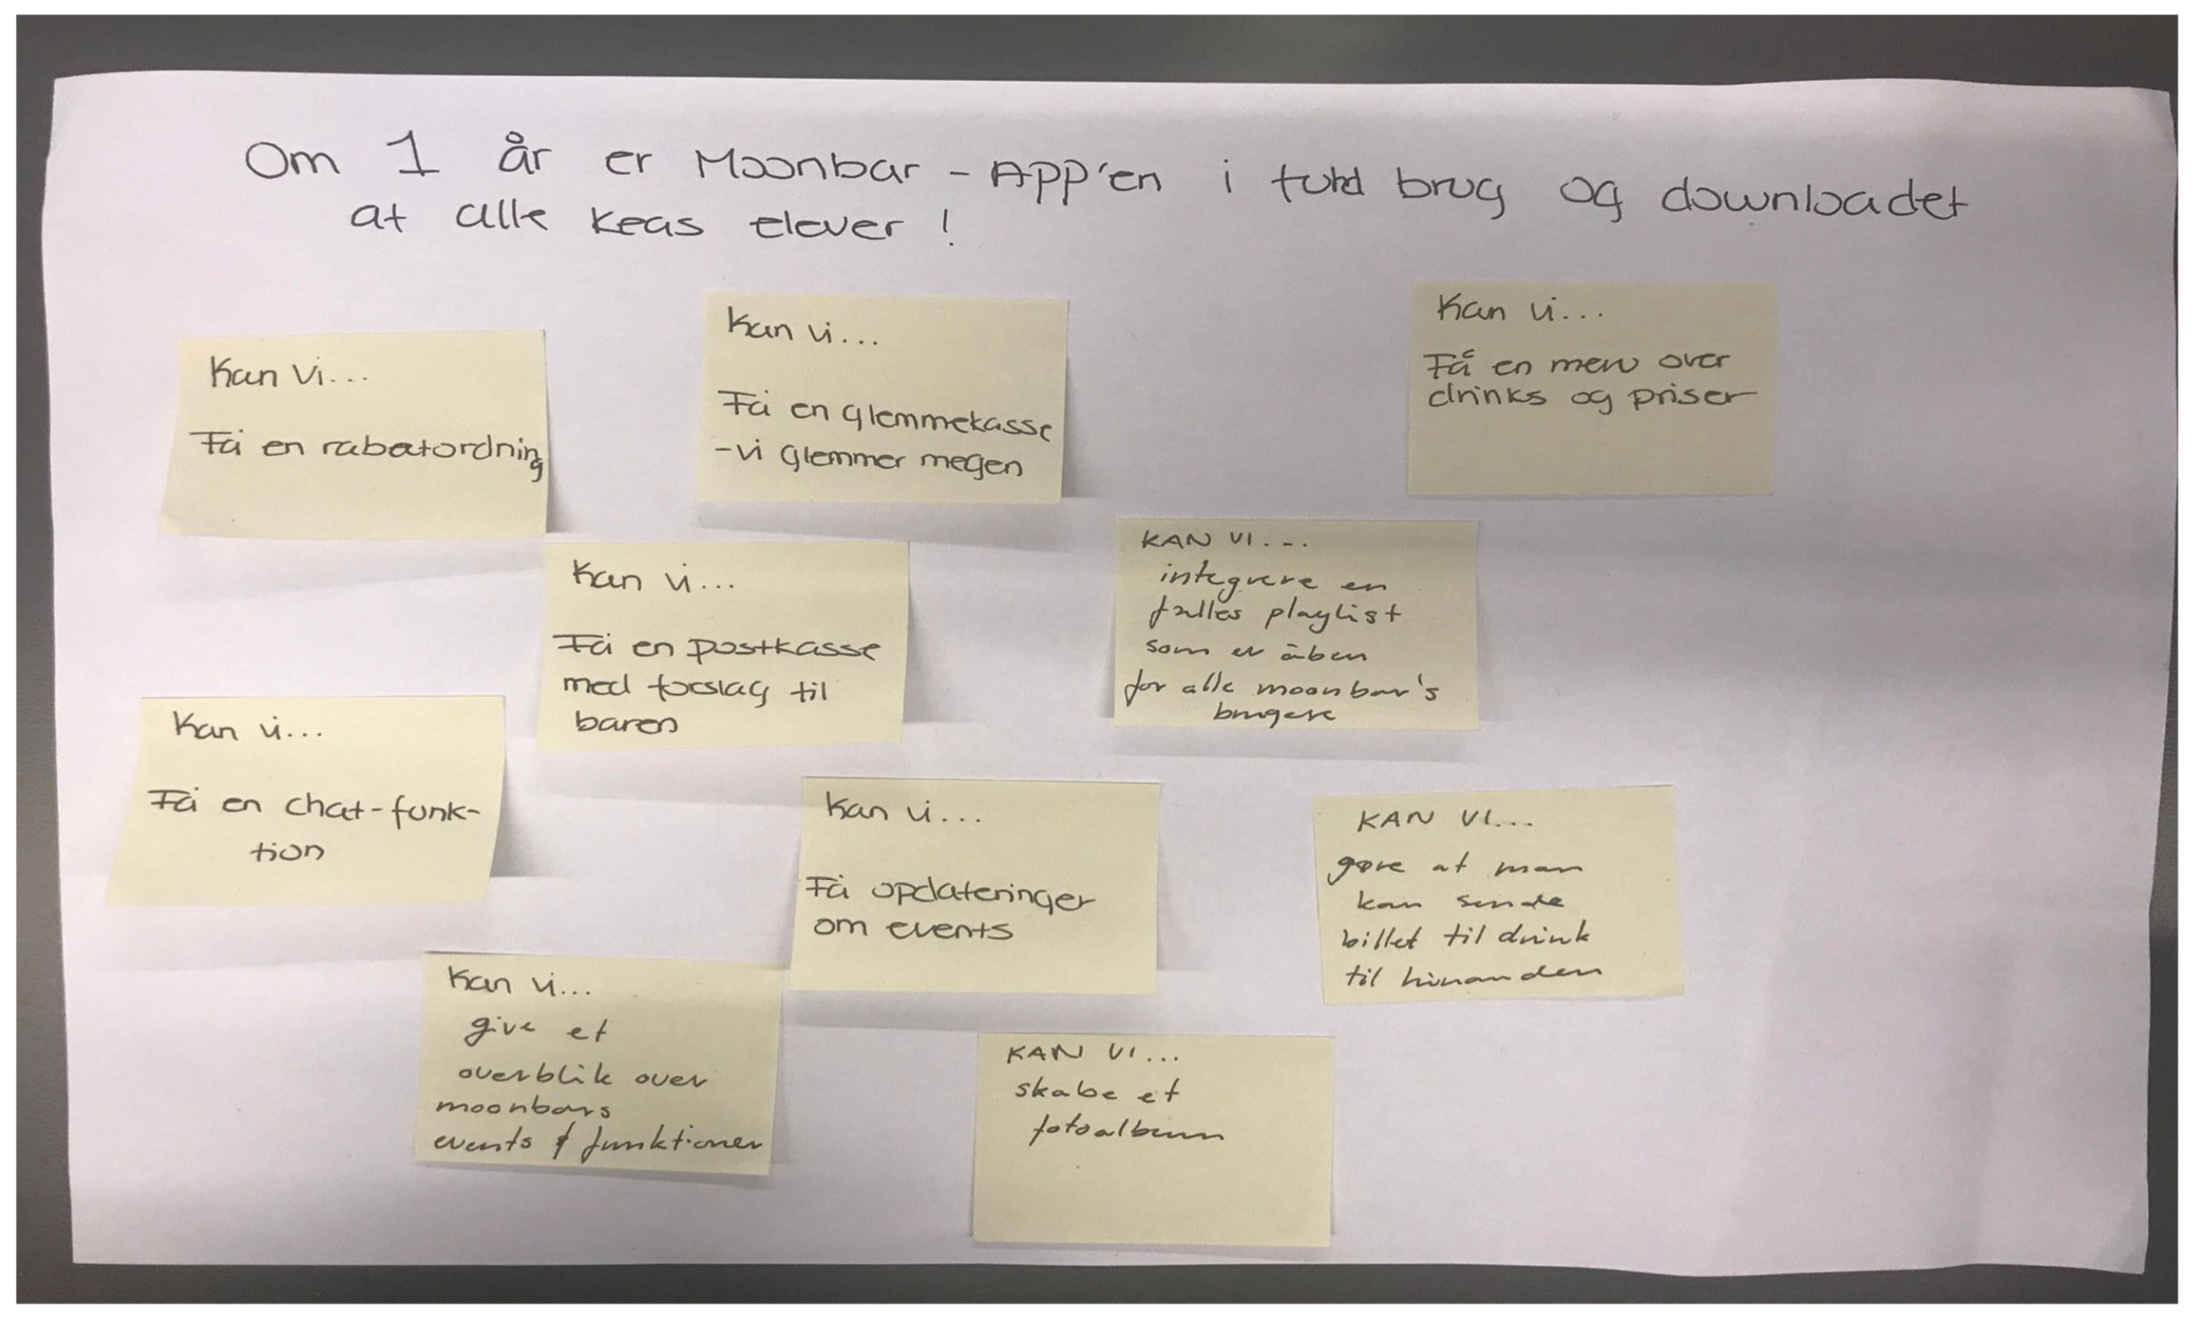 Om 1 år er Moonbar - APP'en i fuld brug og downloadet
af alle Keas elever !
Kan Vi...
Få en rabatordning
Kan vi...
Få en glemmekasse
- vi glemmer meget
Kan vi...
Få en menu over
drinks og priser
Kan vi...
Få en postkasse
med forslag til
baren
KAN VI...
integrere en
fælles playlist
som er åben
for alle moonbar's
brugere
Kan vi...
Få en chat-funk-
tion
Kan vi...
Få opdateringer
om events
KAN VI...
gøre at man
kan sende
billet til drink
til hinanden
Kan vi...
give et
overblik over
moonbars
events & funktioner
KAN VI...
skabe et
fotoalbum